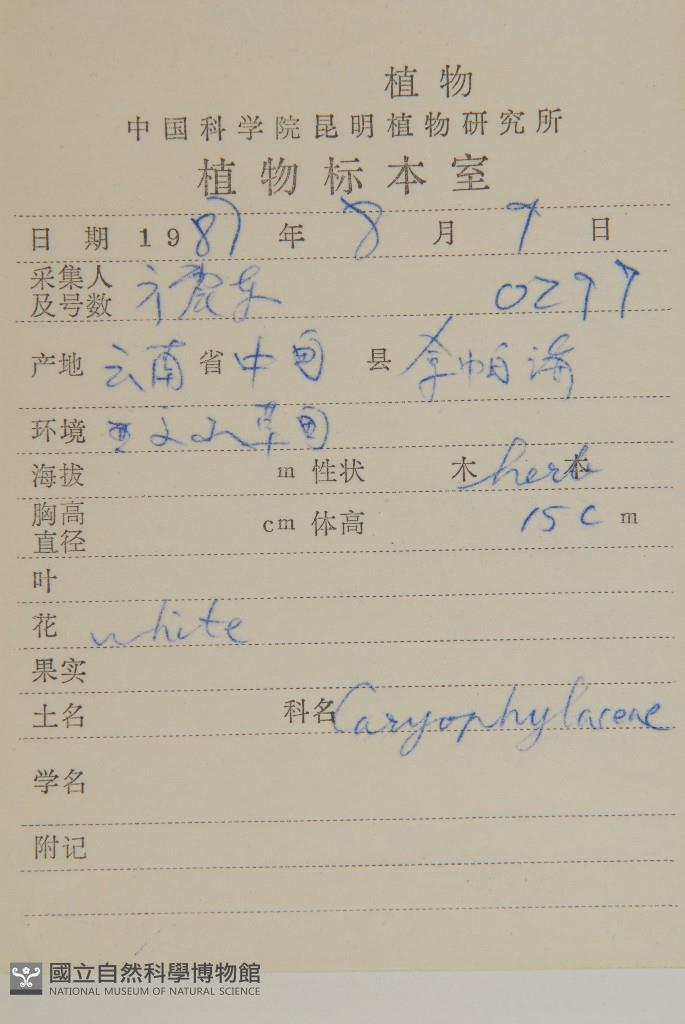 植物
中国科学院昆明植物研究所
植物标本室
日期 1987年 8月 9日
采集人及号数 0297
产地 云南省 中甸 县 拿帕海
环境 草甸
海拔 m 性状 木 herb 本
胸高直径 cm 体高 15 c m
叶
花 white
果实
土名 科名 Caryophylaceae
学名
附记
國立自然科學博物館
NATIONAL MUSEUM OF NATURAL SCIENCE